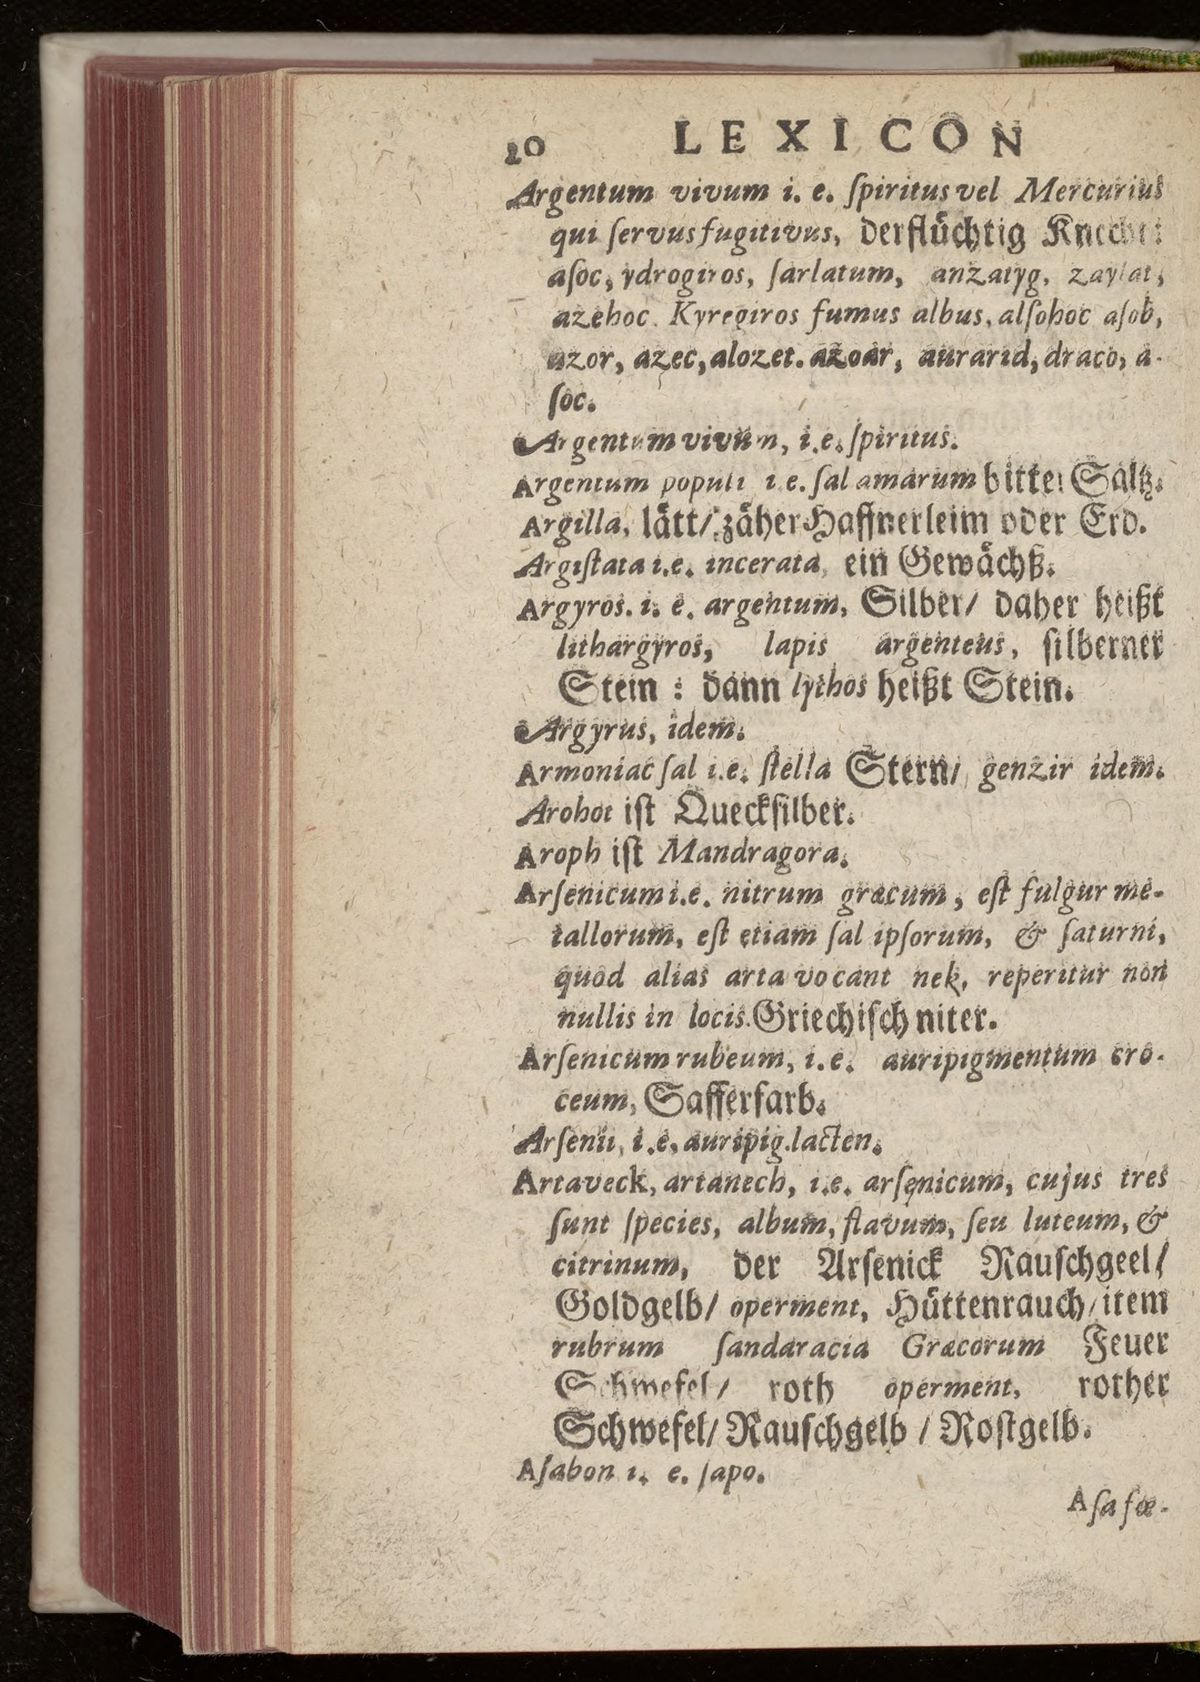 20 LEXICON
Argentum vivum i. e. ſpiritus vel Mercurius
qui ſervus fugitivus, derflüchtig Knecht:
aſoc, ydrogiros, ſarlatum, anzatyg, zaylat,
azehoc. Kyregiros fumus albus, alſohoc aſob,
azor, azec, alozet. azoar, aurarid, draco, a-
ſoc.
Argentum vivum, i.e. ſpiritus.
Argentum populi i.e. ſal amarum bitter Saltz.
Argilla, lått/ zåher Haffnerleim oder Erd.
Argiſtata i.e. incerata, ein Gewåchß.
Argyros. i. e. argentum, Silber/ daher heißt
lithargyros, lapis argenteus, ſilberner
Stein : dann lythos heißt Stein.
Argyrus, idem.
Armoniac ſal i.e. ſtella Stern/ genzir idem.
Arohot iſt Queckſilber.
Aroph iſt Mandragora.
Arſenicum i.e. nitrum græcum, eſt fulgur me-
tallorum, eſt etiam ſal ipſorum, & ſaturni,
quod alias arta vocant nek, reperitur non
nullis in locis. Griechiſch niter.
Arſenicum rubeum, i.e. auripigmentum cro-
ceum, Safferfarb.
Arſenii, i.e. auripig. lacten.
Artaveck, artanech, i.e. arſenicum, cujus tres
ſunt ſpecies, album, flavum, ſeu luteum, &
citrinum, der Arſenick Rauſchgeel/
Goldgelb/ operment, Hüttenrauch/ item
rubrum ſandaracia Græcorum Feuer
Schwefel/ roth operment, rother
Schwefel/ Rauſchgelb / Roſtgelb.
Aſabon i. e. ſapo.
Aſa fœ-